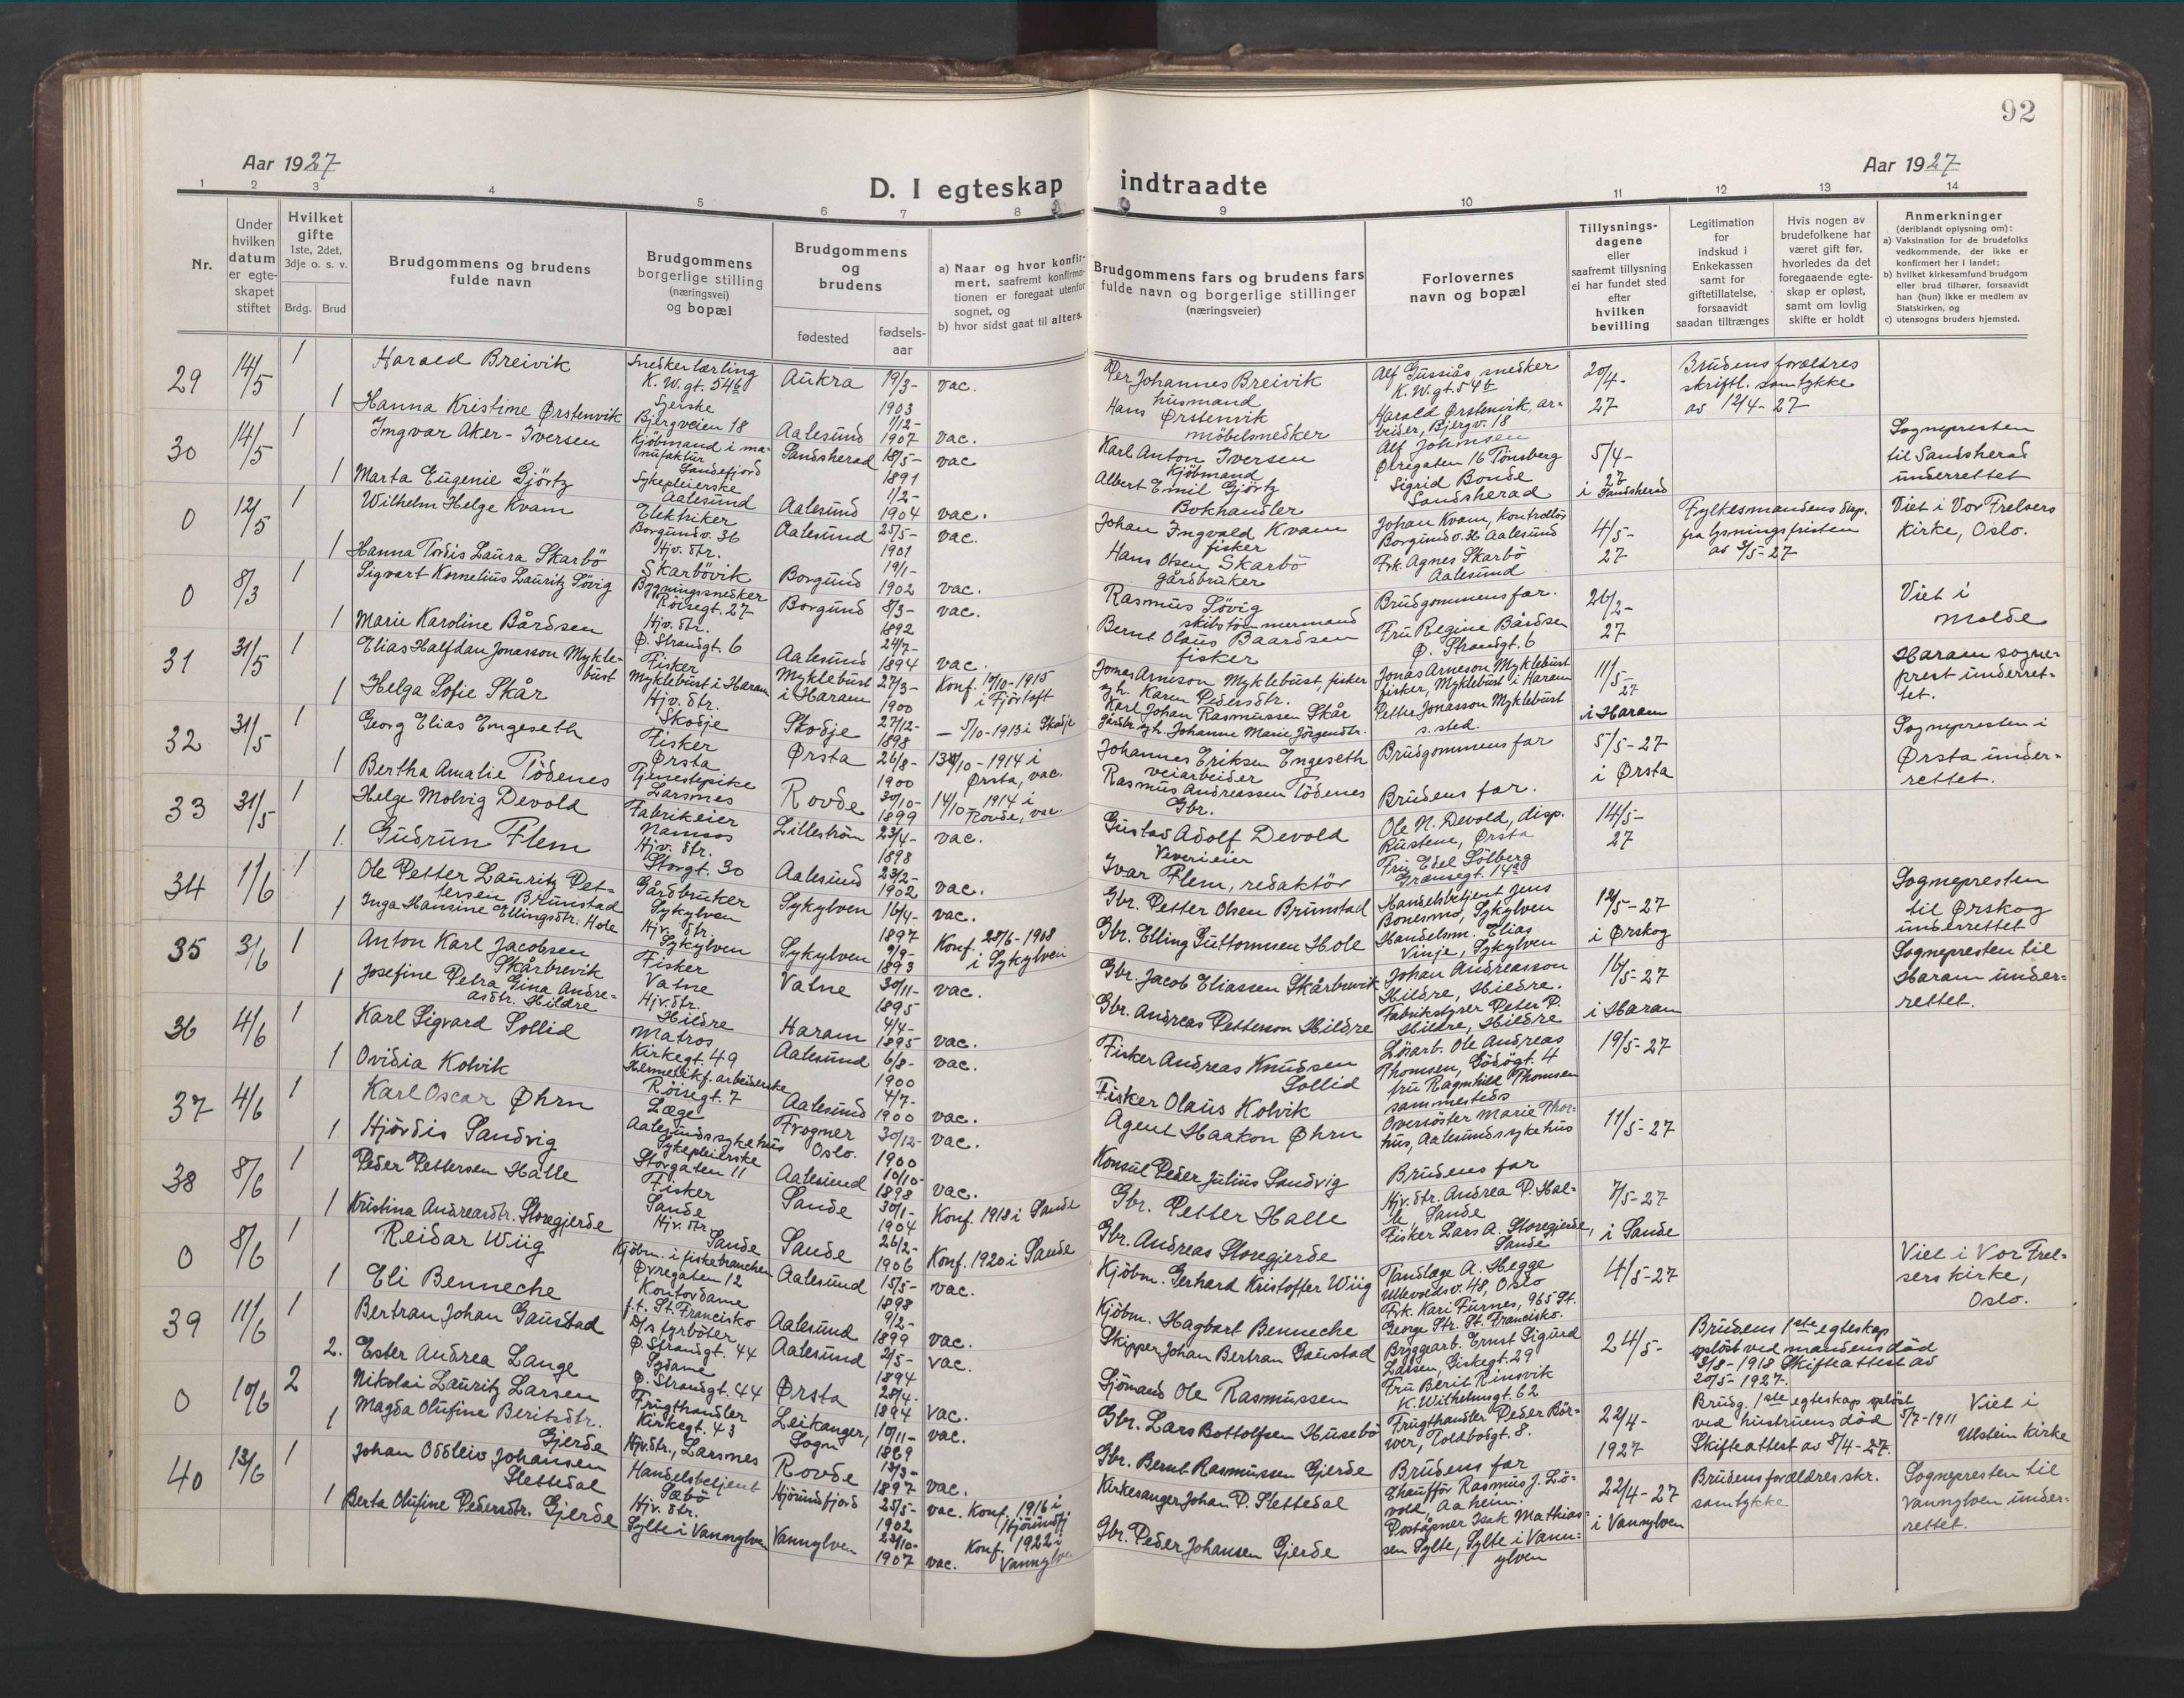 92
Aar 1927
Aar 1927
D. I egteskap indtraadte
1 2 3 4 5 6 7 8 9 10 11 12 13 14
Nr.
Under hvilken datum er egteskapet stiftet
Hvilket gifte
1ste, 2det, 3dje o. s. v.
Brdg. Brud
Brudgommens og brudens fulde navn
Brudgommens borgerlige stilling (næringsvei) og bopæl
Brudgommens og brudens
fødested
fødselsaar
a) Naar og hvor konfirmert, saafremt konfirmationen er foregaat utenfor sognet, og
b) hvor sidst gaat til alters.
Brudgommens fars og brudens fars fulde navn og borgerlige stillinger (næringsveier)
Forlovernes navn og bopæl
Tillysningsdagene eller saafremt tillysning ei har fundet sted efter hvilken bevilling
Legitimation for indskud i Enkekassen samt for giftetillatelse, forsaavidt saadan tiltrænges
Hvis nogen av brudefolkene har været gift før, hvorledes da det foregaaende egteskap er opløst, samt om lovlig skifte er holdt
Anmerkninger
(deriblandt oplysning om):
a) Vaksination for de brudefolks vedkommende, der ikke er konfirmert her i landet;
b) hvilket kirkesamfund brudgom eller brud tilhører, forsaavidt han (hun) ikke er medlem av Statskirken, og
c) utensogns bruders hjemsted.
29 14/5 1 Harald Breivik Snedkerlærling K. W. gt. 54b Aukra 19/3-1903 vac. Per Johannes Breivik husmand Alf Gussiås, snedker K. W. gt. 54b 20/4-27 Brudens forældres skriftl. samtykke av 12/4-27
1 Hanna Kristine Ørstenvik Syerske Bjergveien 18 Aalesund 1/12-1907 vac. Hans Ørstenvik møbelsnedker Harald Ørstenvik, arbeider, Bjergv. 18
30 14/5 1 Ingvar Aker-Iversen Kjøbmand i manufaktur Sandefjord Sandsherad 18/5-1891 vac Karl Anton Iversen Kjøbmand Alf Johnsen Øvregaten 16 Tønsberg 5/4-27 i Sandsherad Sognepresten til Sandsherad underrettet
1 Marta Eugenie Gjörtz Sykepleierske Aalesund Aalesund 1/2-1904 vac. Albert Emil Gjörtz Bokhandler Sigrid Bonde Sandsherad
0 12/5 1 Wilhelm Helge Kvam Elektriker Borgundv. 36 Aalesund 25/5-1901 vac. Johan Ingvald Kvam fisker Johan Kvam, kontrollör Borgundv. 36 Aalesund 4/5-27 Fylkesmandens disp. fra lysningsfristen av 3/5-27 Viet i Vor Frelsers Kirke, Oslo.
1 Hanna Tordis Laura Skarbö Hjv. dtr. Skarbövik Borgund 19/1-1902 vac. Hans Olsen Skarbö gårdbruker Frk. Agnes Skarbö Aalesund
0 8/3 1 Sigvart Kornelius Lauritz Lövig Bygningssnedker Röisegt. 27 Borgund 8/3-1892 vac. Rasmus Lövig skibstömmermand Brudgommens far. 26/2-27 Viet i Molde
1 Marie Karoline Bårdsen Hjv. dtr. Ø. Strandgt. 6 Aalesund 24/7-1894 vac. Bernt Olaus Baardsen fisker Fru Regine Bårdsen Ø. Strandgt. 6
31 31/5 1 Elias Halfdan Jonasson Myklebust Fisker Myklebust i Haram Myklebust i Haram 27/3-1900 Konf. 10/10-1915 i Fjörtoft Jonas Arneson Myklebust, fisker og h. Karen Pedersdtr. Jonas Arneson Myklebust fisker, Myklebust i Haram 11/5-27 i Haram Haram sogneprest underrettet.
1 Helga Sofie Skår Hjv. dtr. Skodje Skodje 27/12-1898 – 5/10-1913 i Skodje Karl Johan Rasmussen Skår gårdbr. og h. Johanne Marie Jörgendtr. Petter Jonasson Myklebust s. sted.
32 31/5 1 Georg Elias Engeseth Fisker Ørsta Ørsta 26/8-1900 /10-1914 i Ørsta, vac. Johannes Eriksen Engeseth veiarbeider Brudgommens far 5/5-27 i Ørsta Sognepresten i Ørsta underrettet.
1 Bertha Amalie Tödenes Tjenestepike Larsnes Rovde 30/10-1899 14/10-1914 i Rovde, vac. Rasmus Andreassen Tödenes Gbr. Brudens far.
33 31/5 1 Helge Molvig Devold Fabrikeier Namsos Lilleström 23/4-1898 vac. Gustav Adolf Devold Veverieier Ole N. Devold, disp. Rustene, Ørsta 14/5-27
1. Gudrun Flem Hjv. dtr. Storgt. 30 Aalesund 23/2-1902 vac. Ivar Flem, redaktör Fru Edel Sölberg Grænsegt. 14a
34 1/6 1 Ole Petter Lauritz Pettersen Brunstad Gårdbruker Sykylven Sykylven 16/4-1897 vac. Gbr. Petter Olsen Brunstad Handelsbetjent Jens Bonesmo, Sykylven 12/5-27 i Ørskog Sognepresten til Ørskog underrettet
1 Inga Hansine Ellingsdtr. Hole Hjv. dtr. Sykylven Sykylven 9/9-1893 Konf. 28/6-1908 i Sykylven Gbr. Elling Guttormsen Hole Handelsm. Elias Vinje, Sykylven
35 3/6 1 Anton Karl Jacobsen Skårbrevik Fisker Vatne Vatne 30/11-1895 vac. Gbr. Jacob Eliassen Skårbrevik Johan Andreasson Hildre, Hildre. 16/5-27 i Haram Sognepresten til Haram underrettet.
1 Josefine Petra Gina Andreasdtr. Hildre Hjv. dtr. Hildre Haram 4/4-1895 vac. Gbr. Andreas Petterson Hildre Fabrikstyrer Peter P. Hildre, Hildre
36 4/6 1 Karl Sigvard Sollid Matros Kirkegt. 49 Aalesund 6/8-1900 vac. Fisker Andreas Knudsen Sollid Lösarb. Ole Andreas Thomsen, Gödögt. 4 19/5-27
1 Ovidia Kolvik Hermetikf. arbeiderske Röisegt. 7 Aalesund 4/7-1900 vac. Fisker Olaus Kolvik fru Ragnhild Thomsen sammesteds
37 4/6 1 Karl Oscar Øhrn Læge Aalesunds sykehus Frogner Oslo. 30/12-1900 vac. Agent Haakon Øhrn Oversöster Marie Thorhus, Aalesunds sykehus 11/5-27
1 Hjördis Sandvig Sykepleierske Storgaten 11 Aalesund 10/10-1898 vac. Konsul Peder Julius Sandvig Brudens far
38 8/6 1 Peder Pettersen Halle Fisker Sande Sande 30/1-1904 Konf. 1918 i Sande Gbr. Petter Halle Hjv. dtr. Andrea P. Halle, Sande 7/5-27 i Sande
1 Kristina Andreasdtr. Storegjerde Hjv. dtr. Sande Sande 26/2-1906 Konf. 1920 i Sande Gbr. Andreas Storegjerde Fisker Lars A. Storegjerde, Sande
0 8/6 1 Reidar Wiig Kjöbm. i fiskebranchen Øvregaten 12 Aalesund 15/5-1898 vac. Kjöbm. Gerhard Kristoffer Wiig Tandlæge A. Hegge Ullevoldsv. 48, Oslo 4/5-27 Viet i Vor Frelsers kirke, Oslo.
1 Eli Benneche Kontordame f.t. St. Francisko Aalesund 9/2-1899 vac. Kjöbm. Hagbart Benneche Frk. Kari Furnes, 965 St. George Str. St. Francisko.
39 11/6 1 Bertran Johan Gaustad D/s fyrböter Ø. Strandgt. 44 Aalesund 2/5-1894 vac. Skipper Johan Bertran Gaustad Bryggearb. Ernst Sigurd Larsen, Giskegt. 29 24/5- Brudens 1ste egteskap oplöst ved mandens död 3/8-1918 Skifteattest av 20/5-1927.
2. Ester Andrea Lange Sydame Ø. Strandgt. 44 Ørsta 28/4-1894 vac. Sjömand Ole Rasmussen Fru Berit Rinsvik K. Wilhelmsgt. 62
0 10/6 2 Nikolai Lauritz Larsen Frugthandler Kirkegt. 43 Leikanger, Sogn 10/11-1869 vac. Gbr. Lars Bottolfsen Husebö Frugthandler Peder Börwer, Toldbodgt. 8. 22/4-1927 Brudg. 1ste egteskap oplöst ved hustruens död 5/7-1911 Skifteattest av 8/4-27. Viet i Ulstein kirke
1 Magda Olufine Beritsdtr. Gjerde Hjv. dtr., Larsnes Rovde 13/3-1897 vac. Gbr. Bernt Rasmussen Gjerde Brudens far
40 13/6 1 Johan Oddleiv Johansen Slettedal Handelsbetjent Sæbö Hjörundfjord 25/5-1902 vac. Konf. 1916 i Hjörundfj Kirkesanger Johan P. Slettedal Chaufför Rasmus J. Lövold, Aaheim. 22/4-27 i Vannylven Brudens forældres skr. samtykke Sognepresten til Vannylven underrettet.
1 Berta Olufine Pedersdtr. Gjerde Hjv. dtr. Sylte i Vannylven Vannylven 23/10-1907 vac. Konf. 1922 i Vannylven Gbr. Peder Johansen Gjerde Poståpner Isak Mathiassen Sylte, Sylte i Vannylven